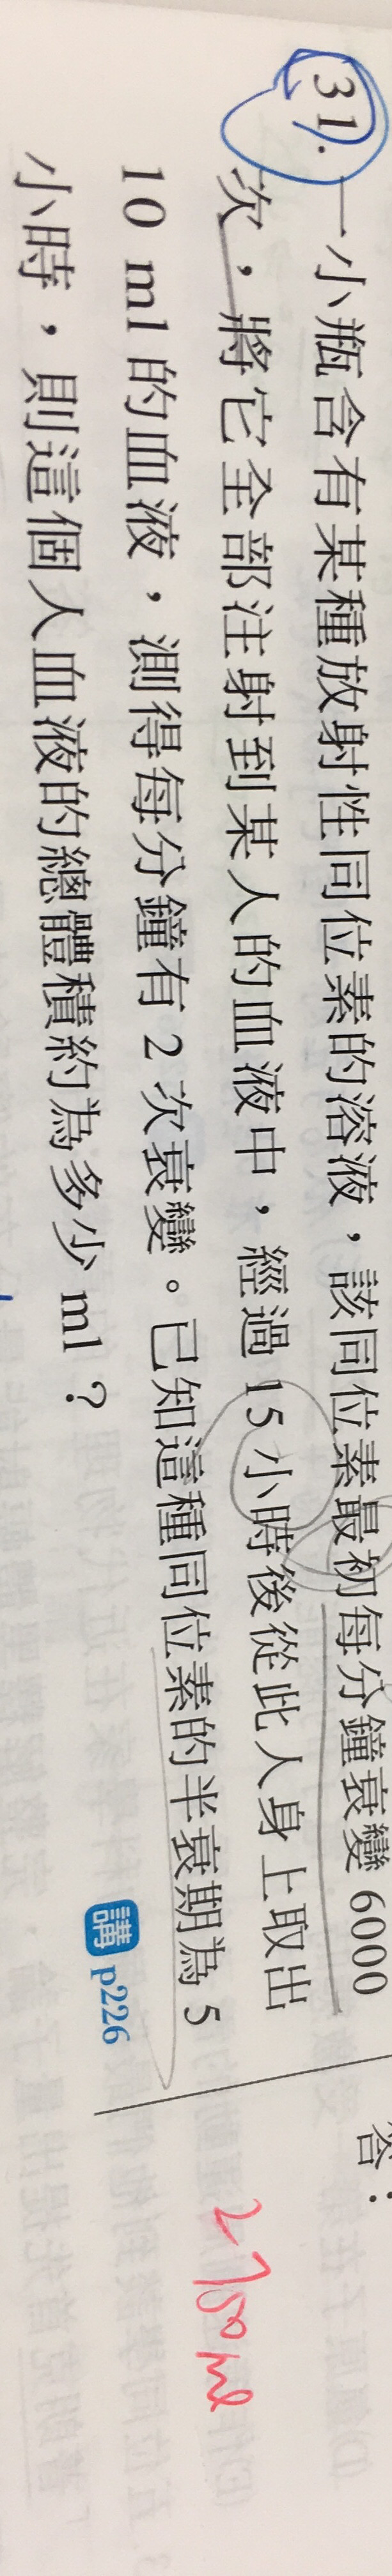 31. 一小瓶含有某種放射性同位素的溶液，該同位素最初每分鐘衰變 6000
次，將它全部注射到某人的血液中，經過 15 小時後從此人身上取出
10 ml 的血液，測得每分鐘有 2 次衰變。已知這種同位素的半衰期為 5
小時，則這個人血液的總體積約為多少 ml？
講 p226
答：